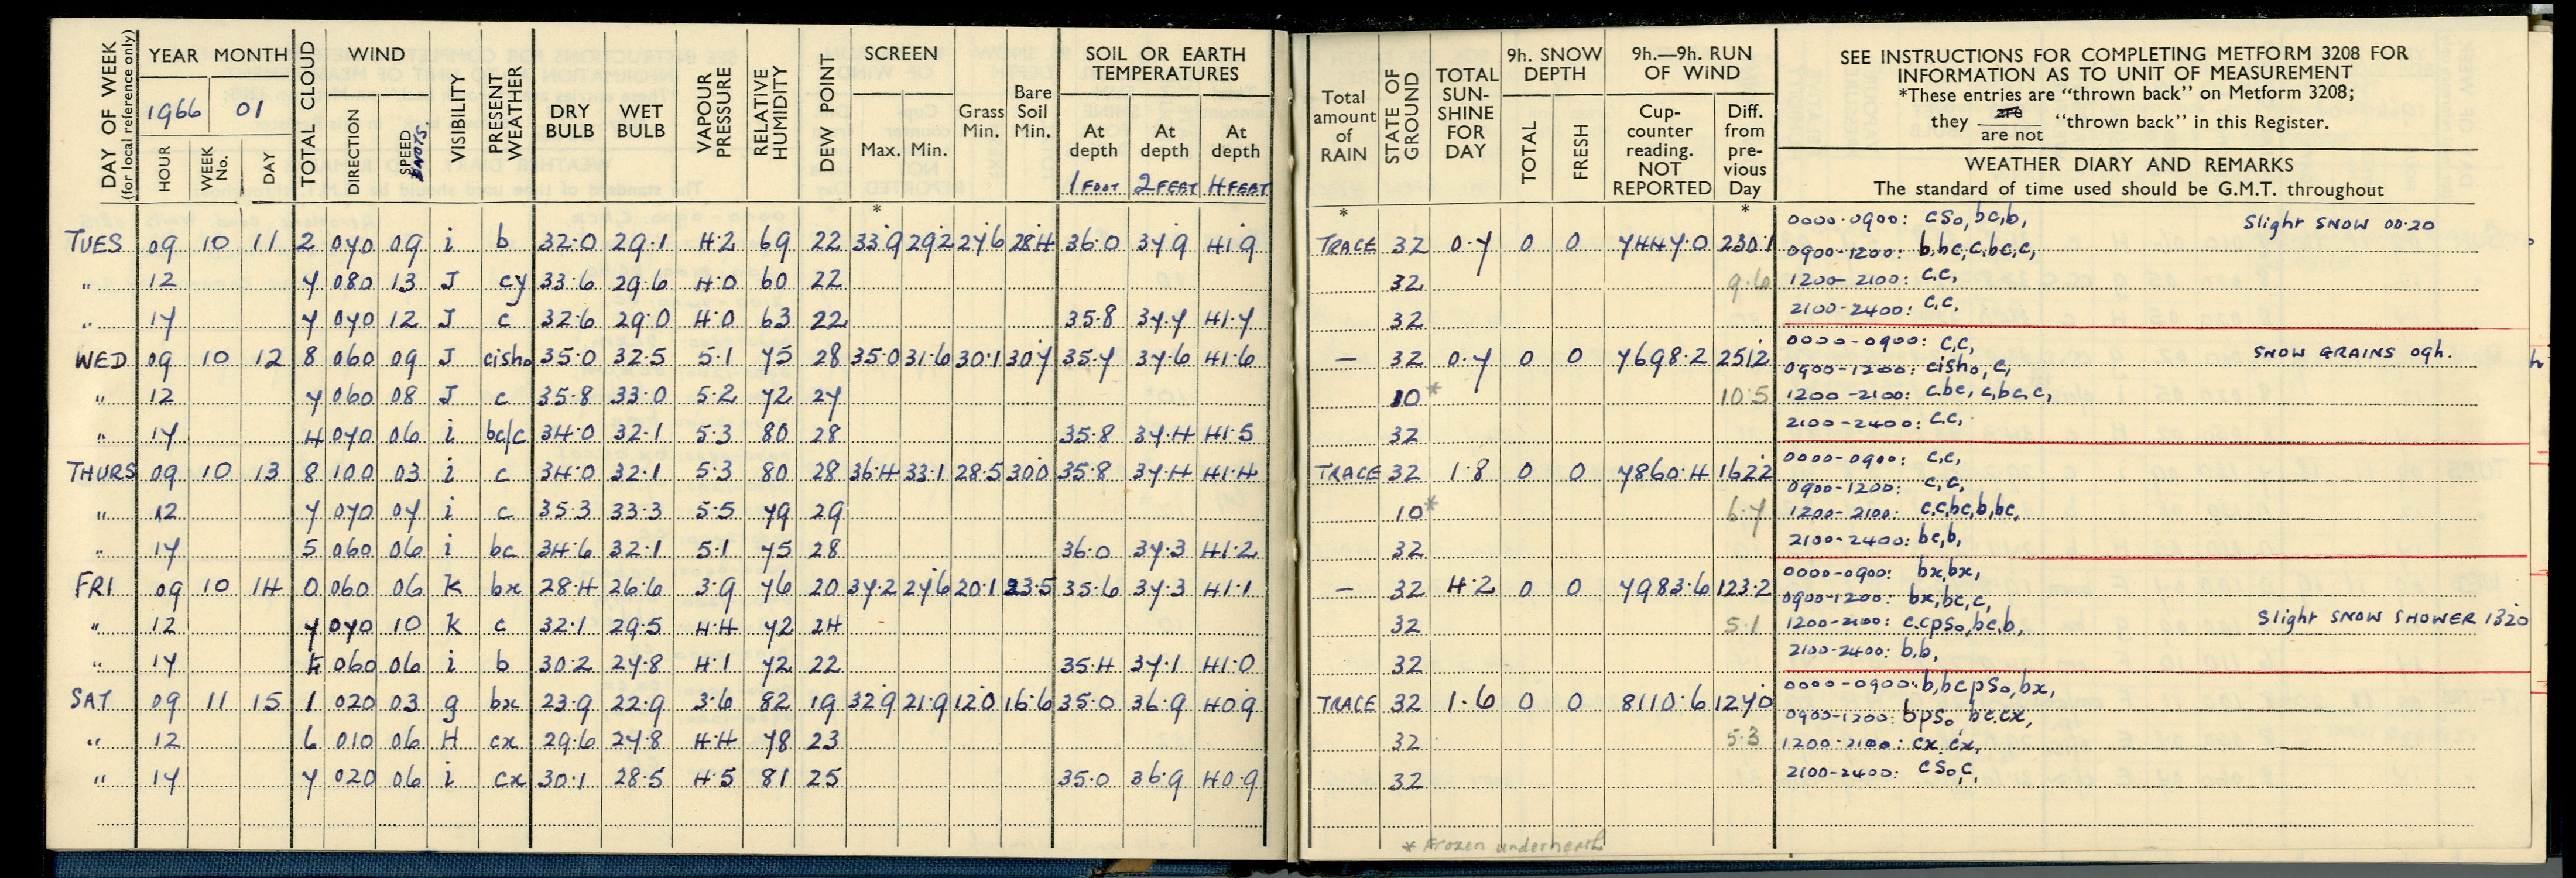 DAY OF WEEK
(for local reference only)
YEAR MONTH
1966 01
HOUR
WEEK No.
DAY
TOTAL CLOUD
WIND
DIRECTION
SPEED
KNOTS.
VISIBILITY
PRESENT WEATHER
DRY BULB
WET BULB
VAPOUR PRESSURE
RELATIVE HUMIDITY
DEW POINT
SCREEN
Max. Min.
Grass Min.
Bare Soil Min.
SOIL OR EARTH TEMPERATURES
At depth 1 FOOT
At depth 2 FEET
At depth 4 FEET
Total amount of RAIN
STATE OF GROUND
TOTAL SUN-SHINE FOR DAY
9h. SNOW DEPTH
TOTAL
FRESH
9h.—9h. RUN OF WIND
Cup-counter reading. NOT REPORTED
Diff. from pre-vious Day
SEE INSTRUCTIONS FOR COMPLETING METFORM 3208 FOR
INFORMATION AS TO UNIT OF MEASUREMENT
*These entries are "thrown back" on Metform 3208;
they are / are not "thrown back" in this Register.
WEATHER DIARY AND REMARKS
The standard of time used should be G.M.T. throughout
* * *
TUES 09 10 11 2 070 09 i b 32.0 29.1 4.2 69 22 33.9 29.2 27.6 28.4 36.0 37.9 41.9 TRACE 32 0.7 0 0 7447.0 230.1
0000-0900: cs₀, bc,b, Slight SNOW 00.20
0900-1200: b,bc,c,bc,c,
" 12 7 080 13 J cy 33.6 29.6 4.0 60 22 32 9.6 1200-2100: c,c,
" 17 7 070 12 J c 32.6 29.0 4.0 63 22 35.8 37.7 41.7 32 2100-2400: c,c,
WED 09 10 12 8 060 09 J cish₀ 35.0 32.5 5.1 75 28 35.0 31.6 30.1 30.7 35.7 37.6 41.6 — 32 0.7 0 0 7698.2 251.2
0000-0900: c,c, SNOW GRAINS 09h.
0900-1200: cish₀, c,
" 12 7 060 08 J c 35.8 33.0 5.2 72 27 10* 10.5 1200-2100: c,bc, c,bc,c,
" 17 4 070 06 i bc/c 34.0 32.1 5.3 80 28 35.8 37.4 41.5 32 2100-2400: c,c,
THURS 09 10 13 8 100 03 i c 34.0 32.1 5.3 80 28 36.4 33.1 28.5 30.0 35.8 37.4 41.4 TRACE 32 1.8 0 0 7860.4 162.2
0000-0900: c,c,
0900-1200: c,c,
" 12 7 070 07 i c 35.3 33.3 5.5 79 29 10* 6.7 1200-2100: c,c,bc,b,bc,
" 17 5 060 06 i bc 34.6 32.1 5.1 75 28 36.0 37.3 41.2 32 2100-2400: bc,b,
FRI 09 10 14 0 060 06 K bx 28.4 26.6 3.9 76 20 37.2 27.6 20.1 23.5 35.6 37.3 41.1 — 32 4.2 0 0 7983.6 123.2
0000-0900: bx,bx,
0900-1200: bx,bc,c,
" 12 7 070 10 K c 32.1 29.5 4.4 72 24 32 5.1 1200-2100: c.cps₀,bc,b, Slight SNOW SHOWER 1320
" 17 060 06 i b 30.2 27.8 4.1 72 22 35.4 37.1 41.0 32 2100-2400: b,b,
SAT 09 11 15 1 020 03 g bx 23.9 22.9 3.6 82 19 32.9 21.9 12.0 16.6 35.0 36.9 40.9 TRACE 32 1.6 0 0 8110.6 127.0
0000-0900: b,bcps₀,bx,
0900-1200: bps₀ bc.cx,
" 12 6 010 06 H cx 29.6 27.8 4.4 78 23 32 5.3 1200-2100: cx,cx,
" 17 7 020 06 i cx 30.1 28.5 4.5 81 25 35.0 36.9 40.9 32 2100-2400: cs₀,c,
* Frozen underneath